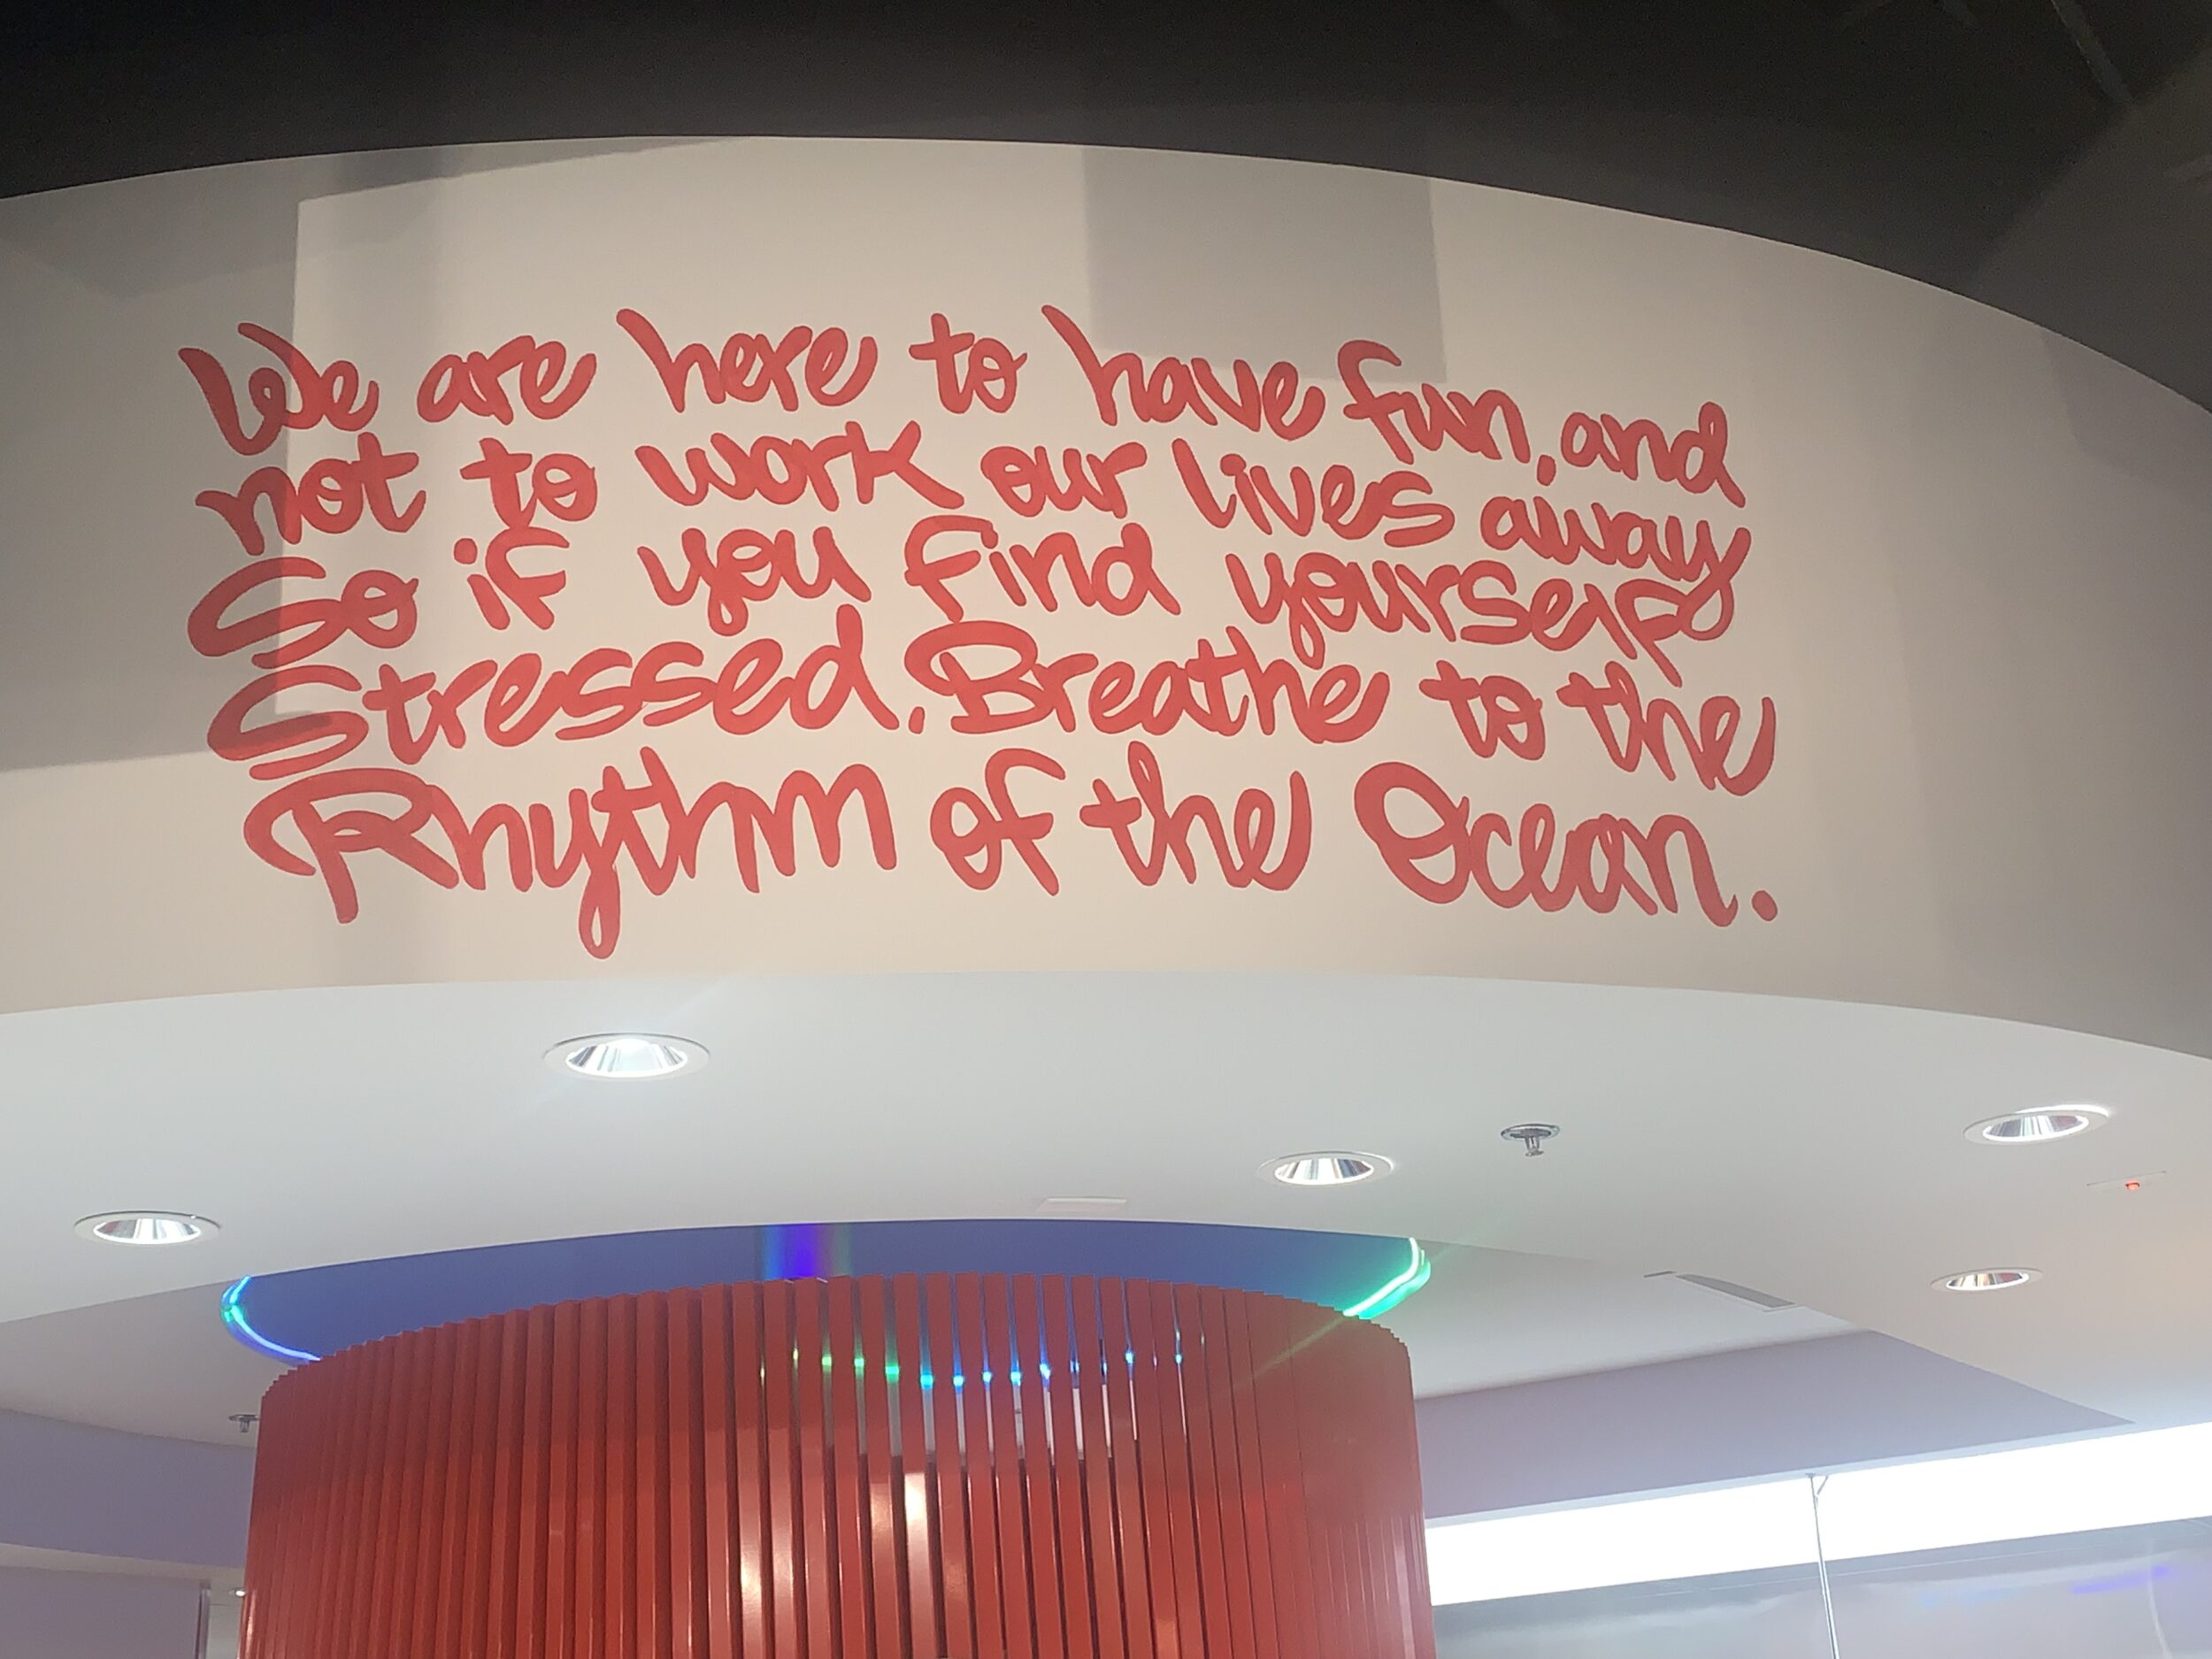 We are here to have fun, and
not to work our lives away
So if you find yourself
Stressed. Breathe to the
Rhythm of the Ocean.